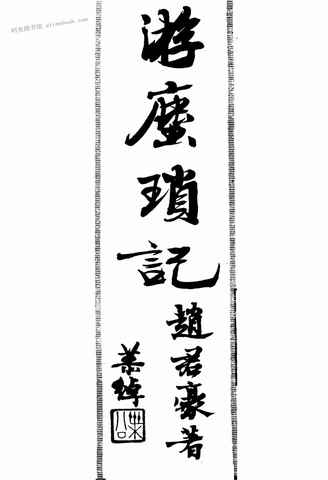 游塵瑣記
趙君豪著
恭綽